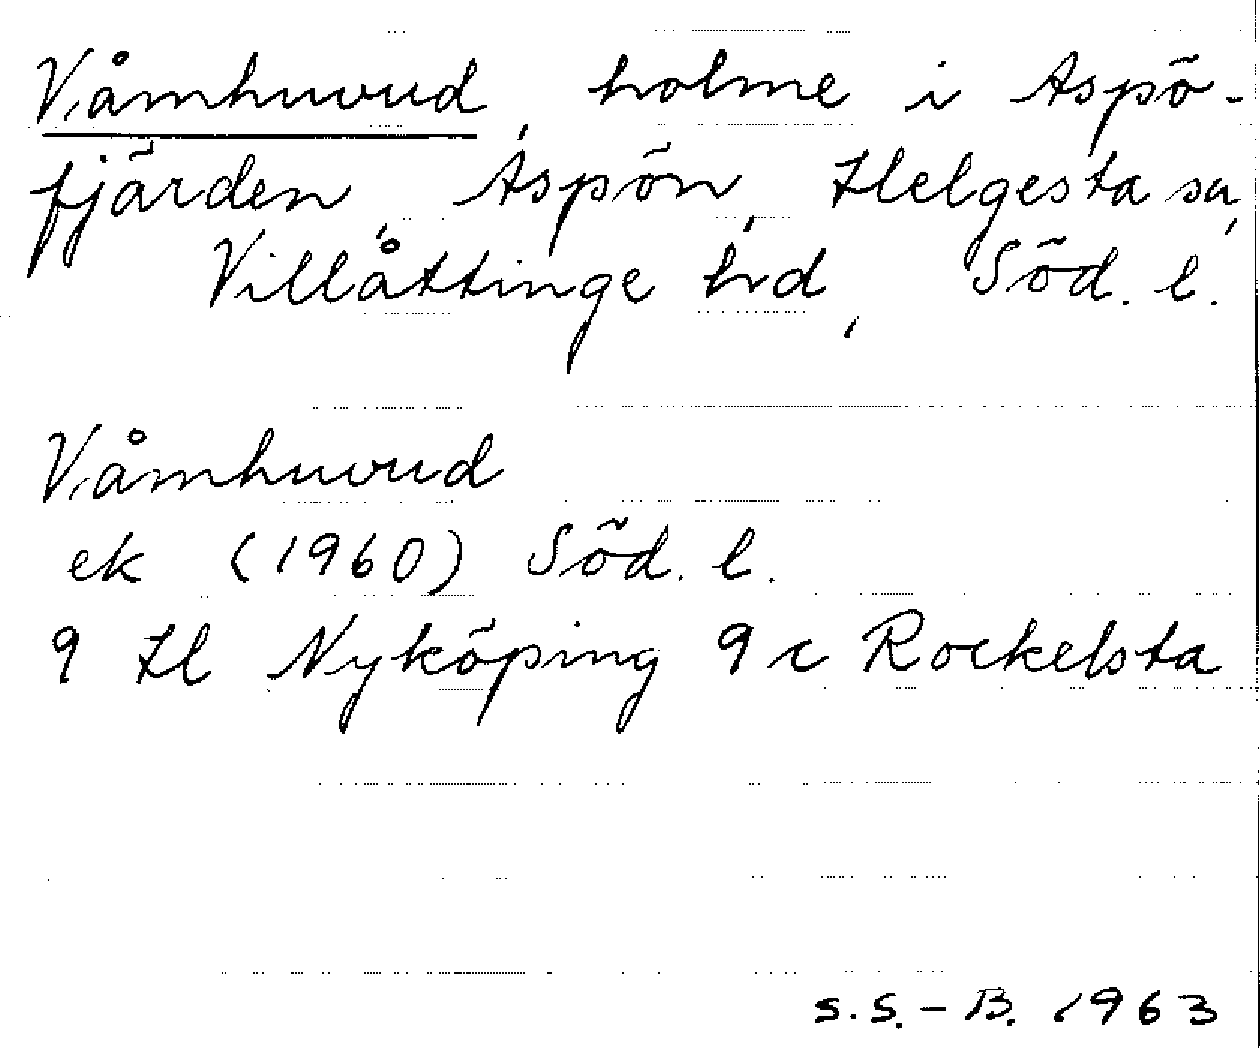 Våmhuvud, holme i Aspö-
fjärden, Aspön, Helgesta sn,
Villåttinge hd, Söd. l.
Våmhuvud
ek (1960) Söd. l.
9 H Nyköping 9 c Rockelsta
S.S.-B. 1963